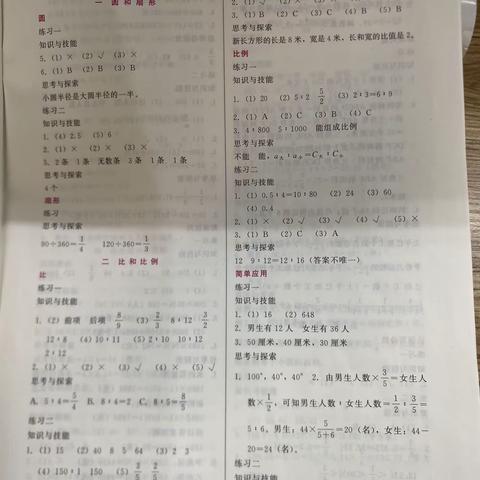 一 圆和扇形
圆
练习一
知识与技能
5. (1) × (2) √ (3) ×
6. (1) B (2) B (3) B
思考与探索
小圆半径是大圆半径的一半。
练习二
知识与技能
1. (4) 2.5 (5) 6
2. (1) × (2) × (3) ×
3. 2条 1条 无数条 3条 1条 1条
思考与探索
4个
扇形
练习
思考与探索
90÷360=1/4 120÷360=1/3
二 比和比例
比
练习一
知识与技能
1. (2) 前项 后项 8/9 (3) 2/3 8∶12 3/2
12∶8 (4) 10∶11 (5) 2∶10 10∶12
2∶12
2. (1) × (2) × (3) √ (4) × (5) √
思考与探索
A. 5∶4=5/4 B. 8∶4=2 C. 8∶5=8/5
练习二
知识与技能
1. (1) 15 (2) 40 8 5 64 (3) 2 3
(4) 150∶1 150 (5)
3. (1) B (2) C (3) B (4) C (5) B
思考与探索
新长方形的长是8米、宽是4米、长和宽的比值是2。
比例
练习一
知识与技能
1. (1) 20 (2) 5∶2 5/2 (3) 2∶3=6∶9
2. (1) A (2) C (3) B (4) C
3. 4∶800 5∶1000 能组成比例
思考与探索
不能 能，a大∶a小=C大∶C小
练习二
知识与技能
1. (1) 0.5∶4=10∶80 (2) 24 (3) 60
(4) 0.4
2. (1) × (2) √ (3) √ (4) √ (5) ×
3. (1) B (2) C (3) A
思考与探索
12 9∶12=12∶16（答案不唯一）
简单应用
练习一
知识与技能
1. (1) 16 (2) 648
2. 男生有12人 女生有36人
3. 50厘米、40厘米、30厘米
思考与探索
1. 100°，40°，40° 2. 由男生人数×3/5=女生人
数×1/2，可知男生人数∶女生人数=1/2∶3/5=
5∶6。男生：44×5/(5+6)=20（名），女生：44-
20=24（名）。
练习二
知识与技能